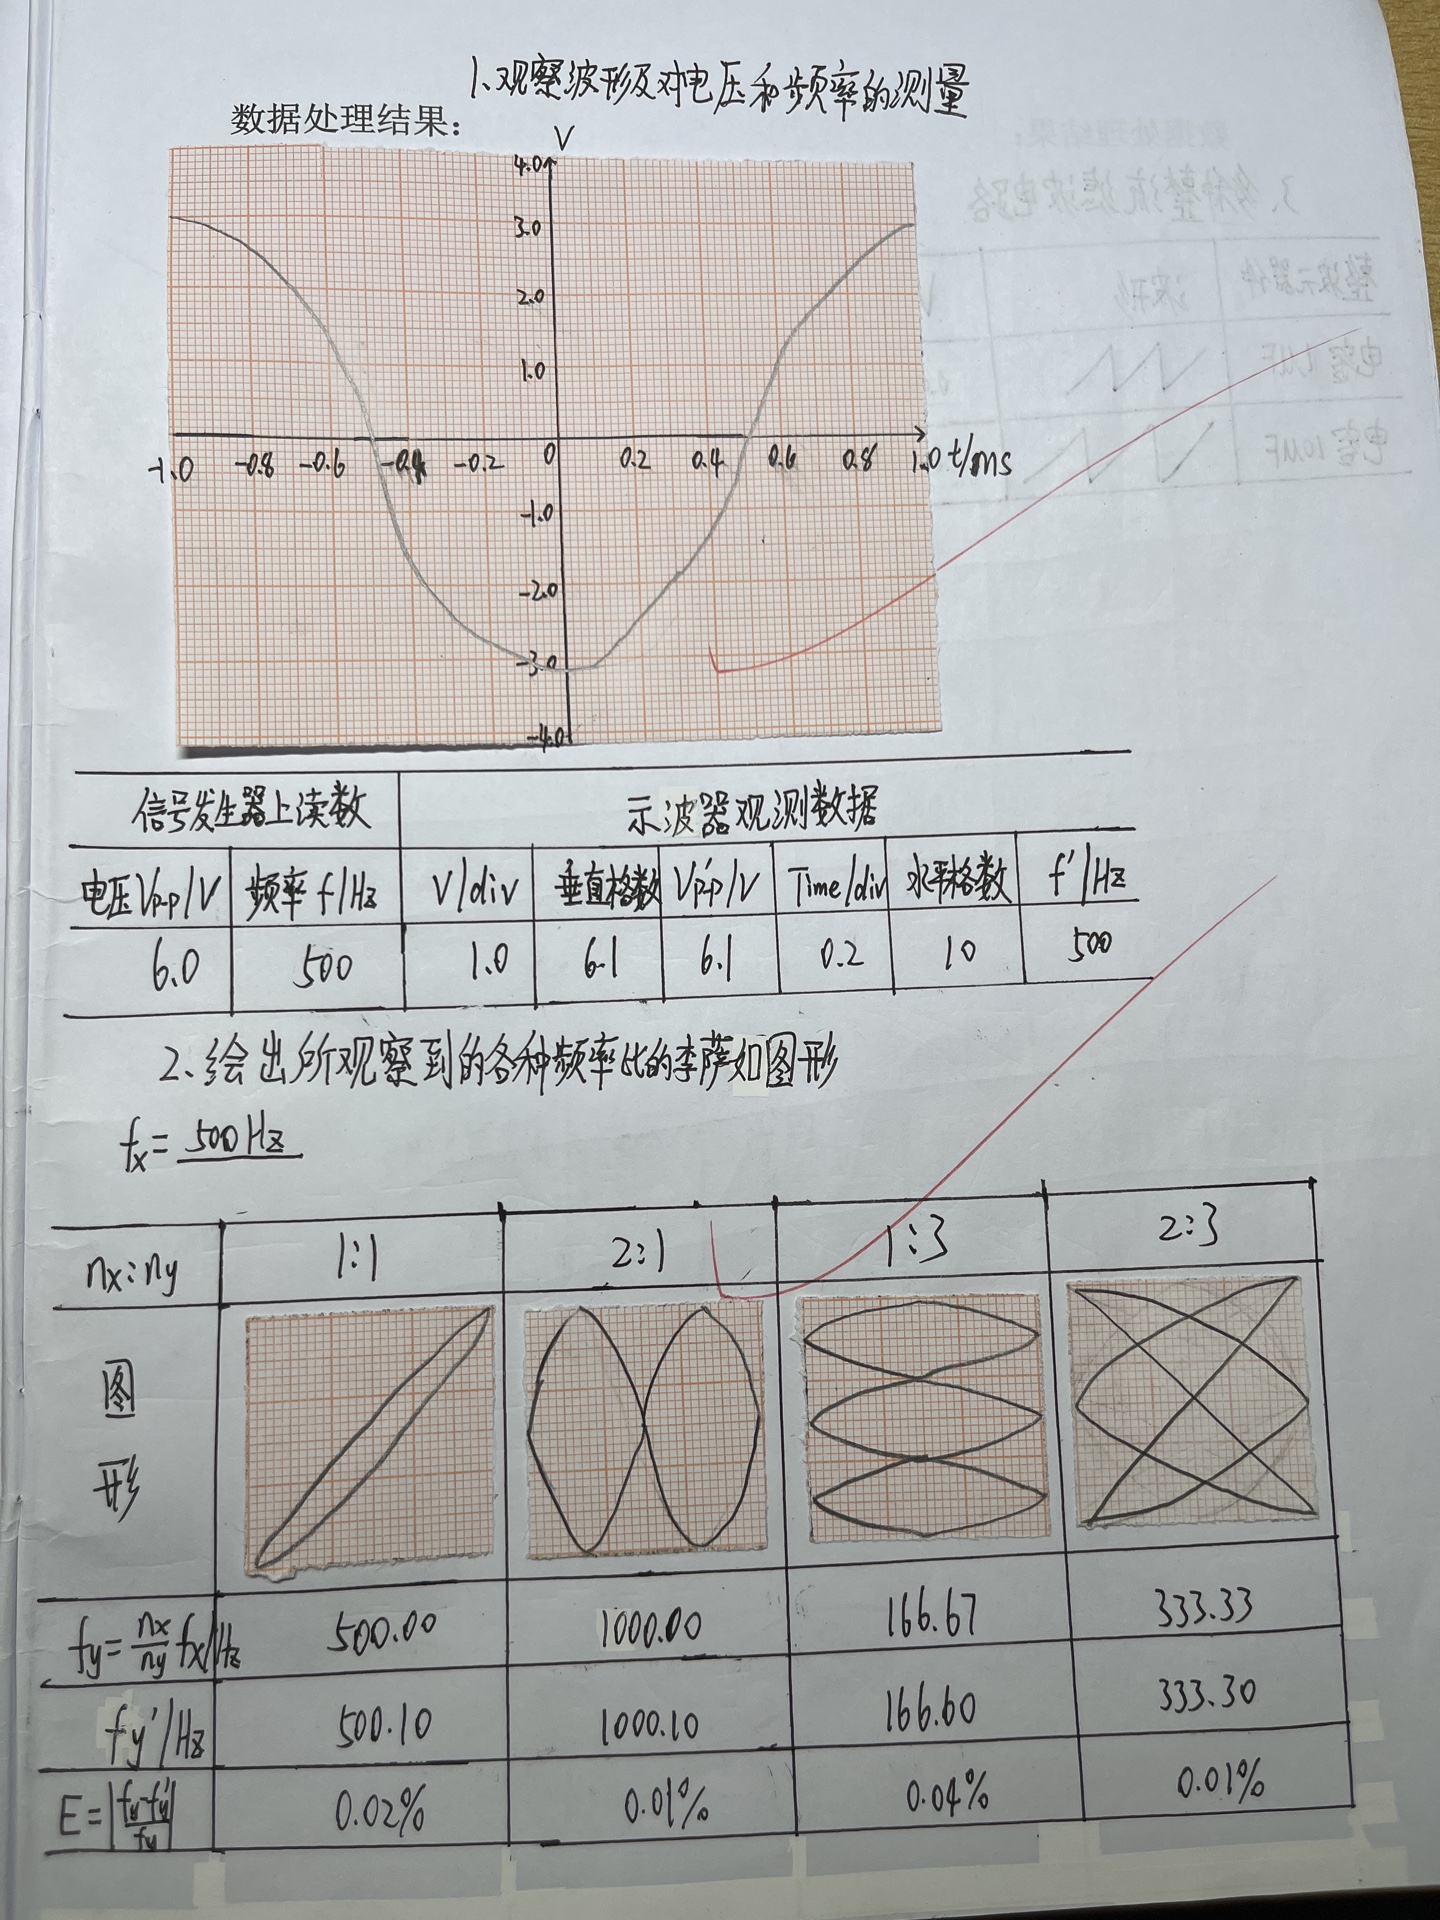 1、观察波形及对电压和频率的测量
数据处理结果：
V
4.0
3.0
2.0
1.0
-1.0 -0.8 -0.6 -0.4 -0.2 0 0.2 0.4 0.6 0.8 1.0 t/ms
-1.0
-2.0
-3.0
-4.0
信号发生器上读数 示波器观测数据
电压Vp-p/V 频率 f/Hz V/div 垂直格数 V'p-p/V Time/div 水平格数 f'/Hz
6.0 500 1.0 6.1 6.1 0.2 10 500
2、绘出所观察到的各种频率比的李萨如图形
fx = 500Hz
nx:ny 1:1 2:1 1:3 2:3
图
形
fy=nx/ny fx/Hz 500.00 1000.00 166.67 333.33
fy'/Hz 500.10 1000.10 166.60 333.30
E=|fy-fy'/fy| 0.02% 0.01% 0.04% 0.01%